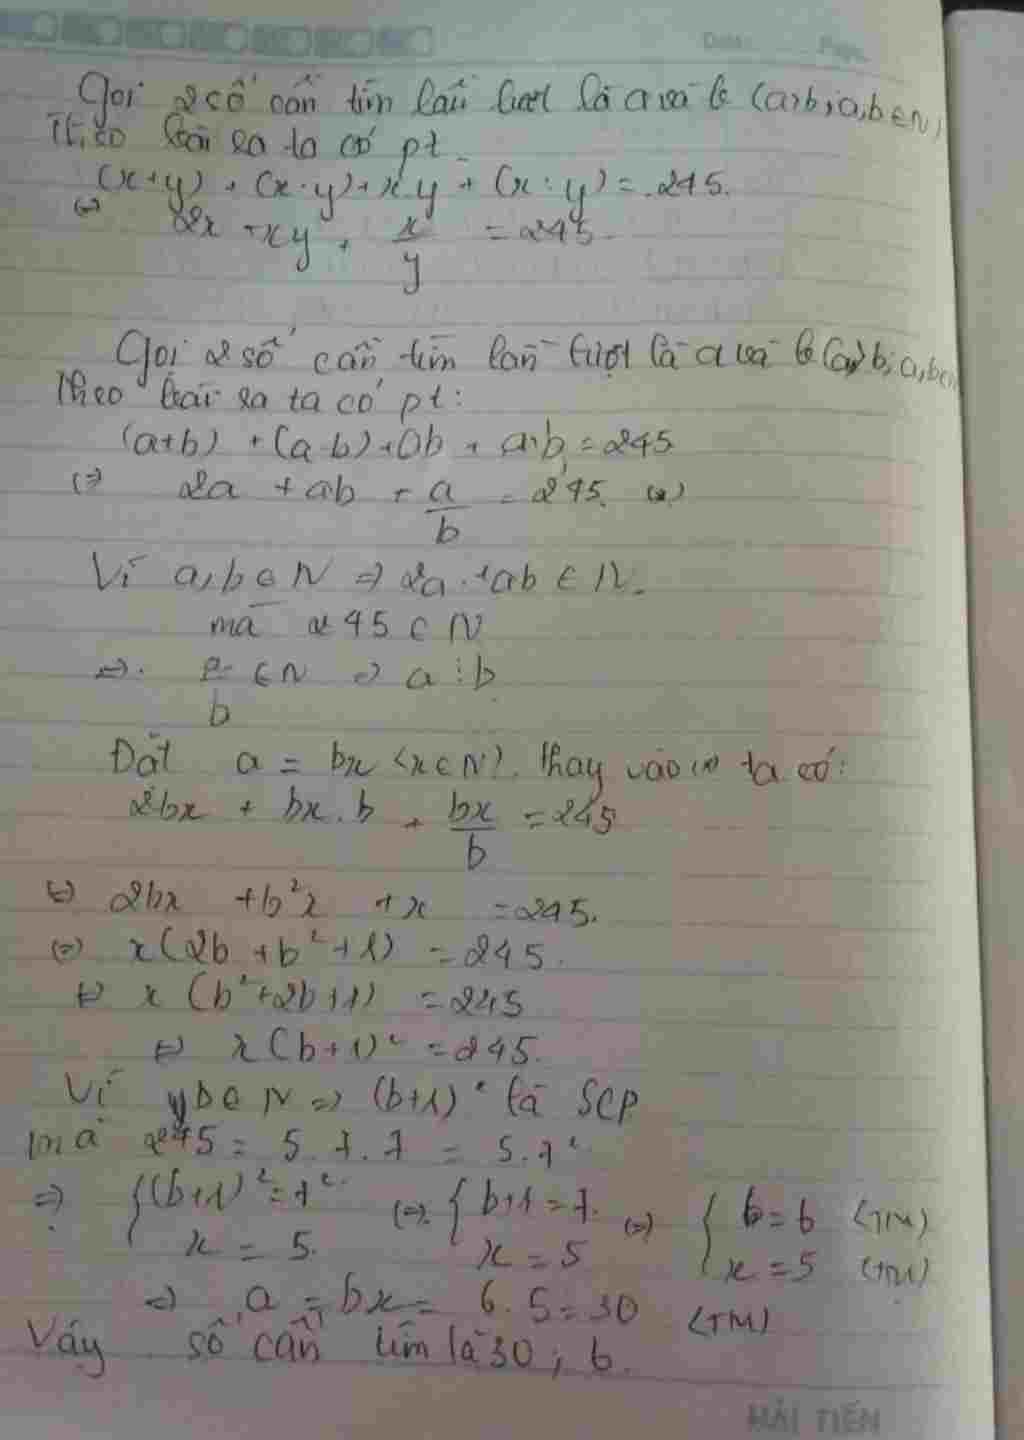 Date: Page:
Gọi 2 cố cần tìm lần lượt là a và b (a>b; a,b∈N)
Theo bài ra ta có pt
(x+y) + (x-y) + xy + (x:y) = 245.
⇔ 2x + xy + x/y = 245.
Gọi 2 số cần tìm lần lượt là a và b (a>b; a,b∈N
Theo bài ra ta có pt:
(a+b) + (a-b) + ab + a:b = 245
⇔ 2a + ab + a/b = 245. (*)
Vì a,b∈N ⇒ 2a+ab ∈ N.
mà 245 ∈ N
⇒ a/b ∈N ⇒ a⋮b
Đặt a = bx (x∈N). Thay vào (*) ta có:
2bx + bx.b + bx/b = 245
⇔ 2bx + b²x + x = 245.
⇔ x(2b + b² + 1) = 245.
⇔ x (b²+2b+1) = 245
⇔ x(b+1)² = 245.
Vì b∈N ⇒ (b+1)² là SCP
mà 245 = 5.7.7 = 5.7²
⇒ {(b+1)² = 7² ⇔ {b+1 = 7. ⇔ {b = 6 (TM)
x = 5. x = 5 x = 5 (TM)
⇒ a = bx = 6.5 = 30 (TM)
Vậy số cần tìm là 30; 6.
HẢI TIẾN